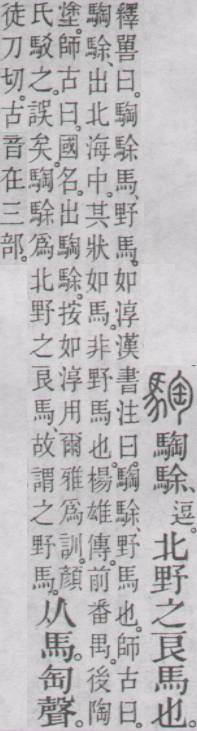 騊 騊駼、逗。北野之良馬也。
釋嘼曰。騊駼馬、野馬。如淳漢書注曰。騊駼、野馬也。師古曰。
騊駼、出北海中。其狀如馬。非野馬也。楊雄傳。前番禺。後陶
塗。師古曰。國名。出騊駼。按如淳用爾雅爲訓。顏
氏駁之。誤矣。騊駼爲北野之良馬。故謂之野馬。从馬。匋聲。
徒刀切。古音在三部。